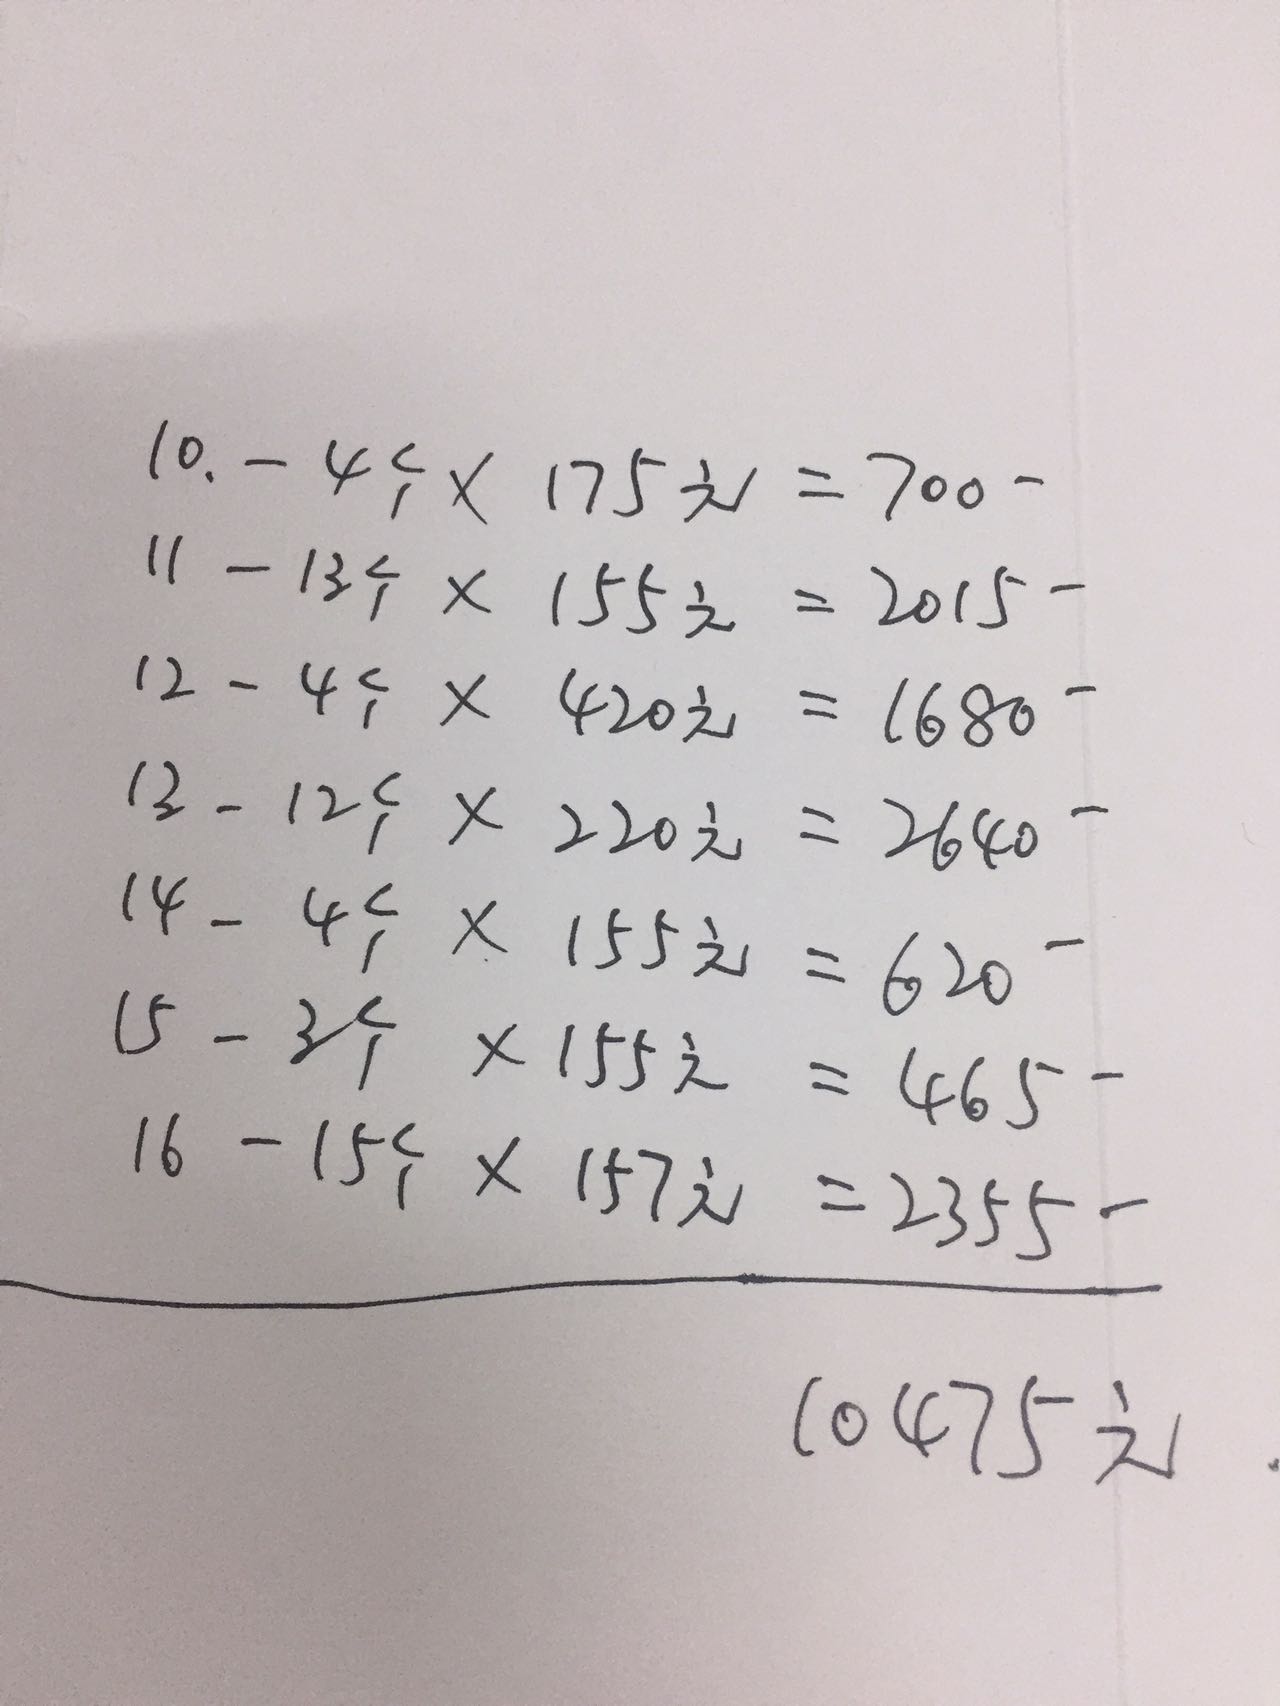 10. - 4个 × 175元 = 700 -
11 - 13个 × 155元 = 2015 -
12 - 4个 × 420元 = 1680 -
13 - 12个 × 220元 = 2640 -
14 - 4个 × 155元 = 620 -
15 - 3个 × 155元 = 465 -
16 - 15个 × 157元 = 2355 -
10475元